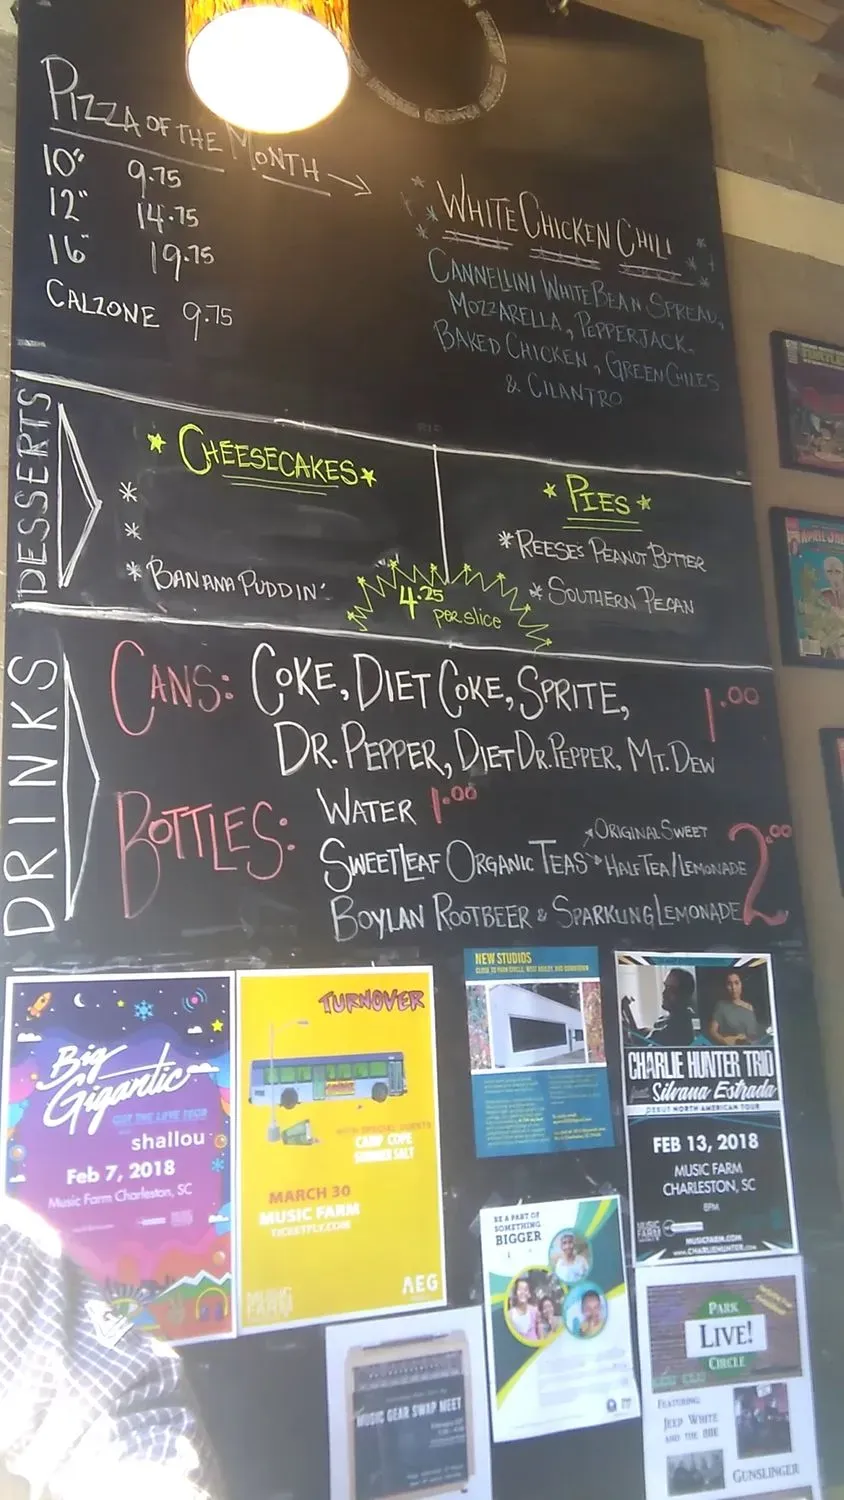 PIZZA OF THE MONTH →
10" 9.75
12" 14.75
16" 19.75
CALZONE 9.75
WHITE CHICKEN CHILI
CANNELLINI WHITE BEAN SPREAD,
MOZZARELLA, PEPPERJACK,
BAKED CHICKEN, GREEN CHILES
& CILANTRO
DESSERTS
CHEESECAKES
*
*
* BANANA PUDDIN'
PIES
* REESE'S PEANUT BUTTER
* SOUTHERN PECAN
4.25
per slice
DRINKS
CANS: COKE, DIET COKE, SPRITE, 1.00
DR. PEPPER, DIET DR. PEPPER, MT. DEW
BOTTLES: WATER 1.00
SWEETLEAF ORGANIC TEAS ORIGINAL SWEET
HALF TEA/LEMONADE
BOYLAN ROOTBEER & SPARKLING LEMONADE 2.00
Big
Gigantic
shallou
Feb 7, 2018
Music Farm Charleston, SC
TURNOVER
WITH SPECIAL GUESTS
CAMP COPE
SUMMER SALT
MARCH 30
MUSIC FARM
TICKETFLY.COM
AEG
NEW STUDIOS
CHARLIE HUNTER TRIO
Silvana Estrada
DEBUT NORTH AMERICAN TOUR
FEB 13, 2018
MUSIC FARM
CHARLESTON, SC
8PM
MUSIC FARM
MUSICFARM.COM
WWW.CHARLIEHUNTER.COM
BE A PART OF
SOMETHING
BIGGER
MUSIC GEAR SWAP MEET
PARK
LIVE!
CIRCLE
FEATURING:
JEEP WHITE
AND THE
GUNSLINGER